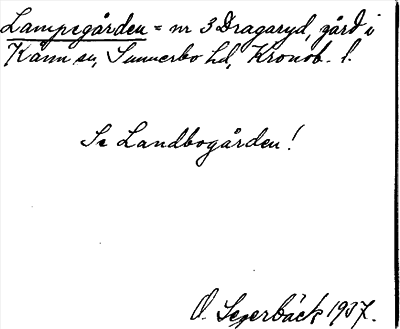 Lampegården = nr 3 Dragaryd, gård i
Kånn sn, Sunnerbo hd, Kronob. l.
Se Landbogården!
O. Segerbäck 1937.